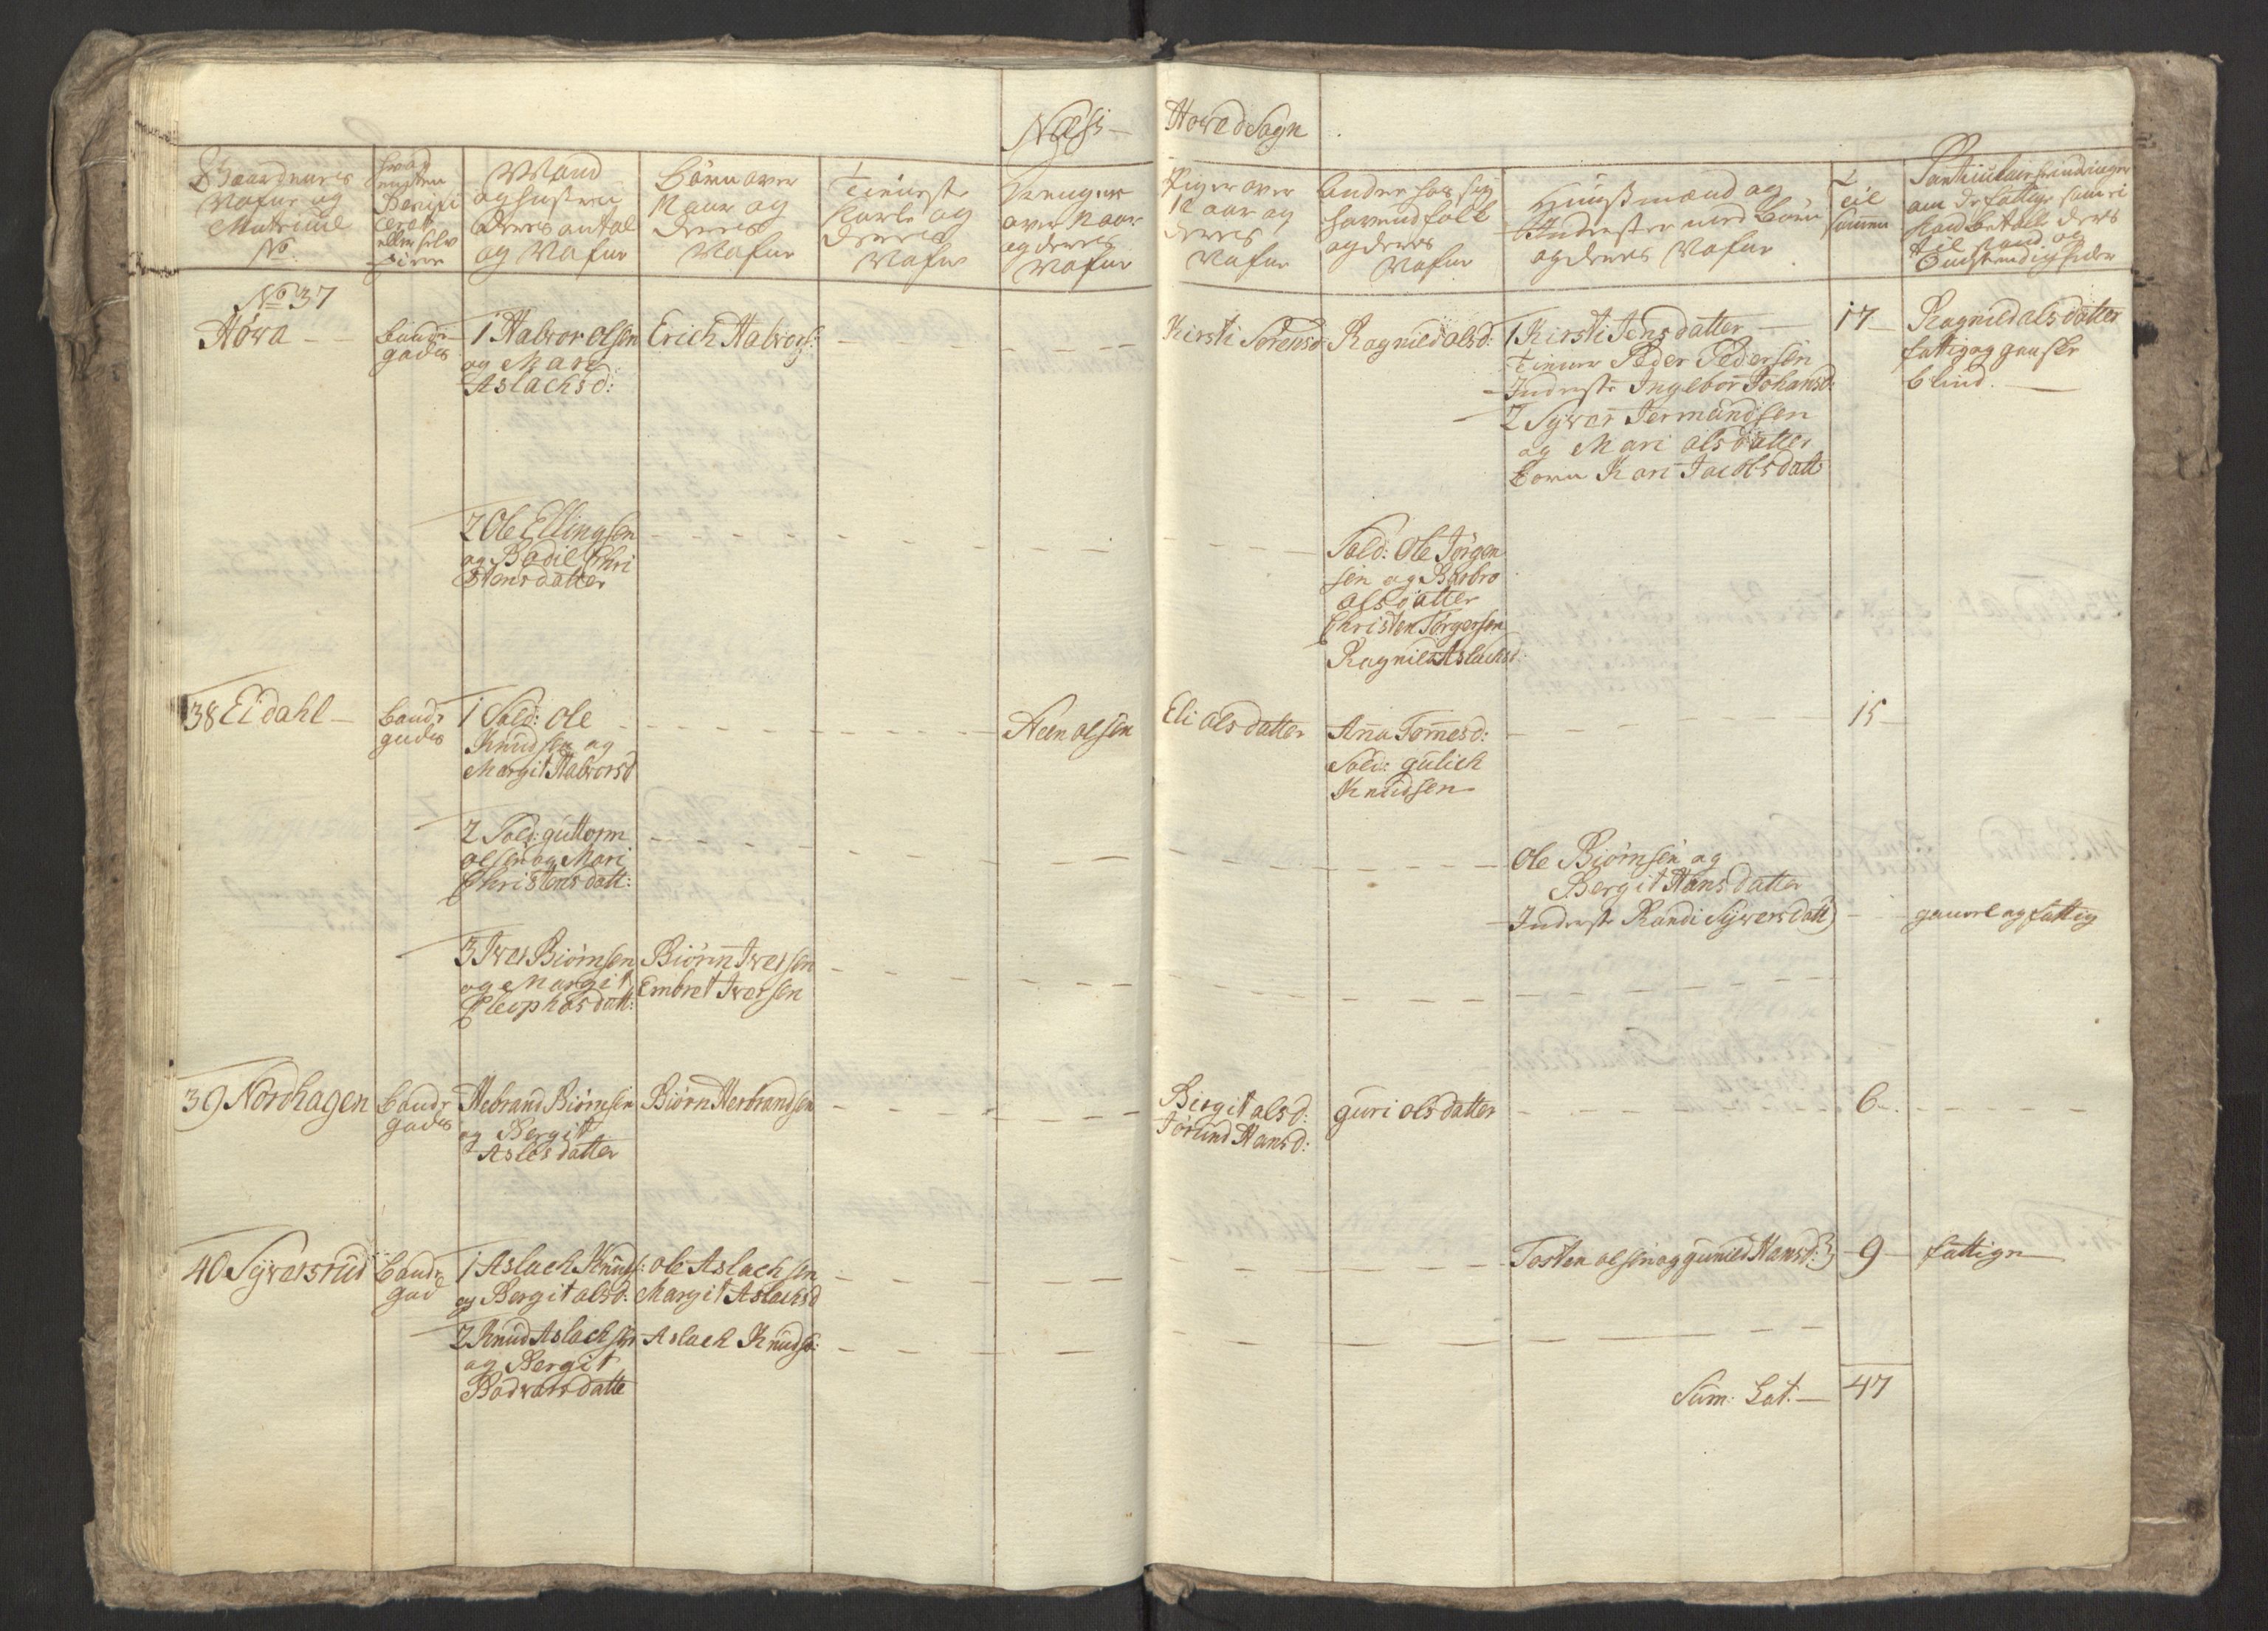 Næss- Hoved Sogn
Gaardenes
Nafne og
Matricul
No
Mand
og hustru
deres antal
og Nafne
Børn over
12 aar og
deres
Nafne
Tieniste
Karle og
deres
Nafne
Drenger
over 12 aar
og deres
Nafne
Piger over
12 aar og
deres
Nafne
andre hos sig
havende folk
og deres
Nafne
Huusmænd og
Inderster med børn
og deres Nafne
Til
samen
No 37
Höva - -
bonde
godes
1 Halvor olsen
og Mari
Aslachsd:
Erich Halvors:
Kirsti Sörensd:
Ragnild olsd:
1 Kirsti Jensdatter
Tiener Peder Pedersen
Inderste Ingebor Johansd:
2 Syver Jermundsen
og Mari olsdatter
børn Kari Jacobsdatt
17
Ragnild olsdatter
fattig og ganske
blind.
2 Ole Ellingsen
og Bodil Chri
stensdatter
Sold: Ole Jörgen
sen og Barbro
olsdatter
Christen Törgersen
Ragnild Aslachsd:
38 Eidahl -
bonde
godes
1 Sold: Ole
Knudsen og
Margit Halvorsd
Aen olsen
Eli olsdatter
Anna Tomesd:
Sold: gulich
Knudsen
15
2 Sold: guttorm
olsen og Mari
Christensdatt:
Ole Biörnsen og
Bergit Hansdatter
Inderste Randi Syversdatt)
gamel og fattig
3 Iver Biörnsen
og Margit
Cleophasdatt:
Biörn Iversen
Embret Iversen
39 Nordhagen
bonde
godes
Hebrand Biörnsen
og Bergit
Aslesdatter
Biörn Herbrandsen
Birgit olsd:
Jörund Hansd:
guri olsdatter
6
40 Syversrud
bonde
god
1 Aslach Knuds:
og Bergit olsd:
ole Aslachsen
Margit Aslachsd
Tosten olsen og gunild Hansd:
9
fattige
2 Knud Aslachsen
og Bergit
Bodvarsdatte
Aslach Knuds:
Sum: Lat: - 47